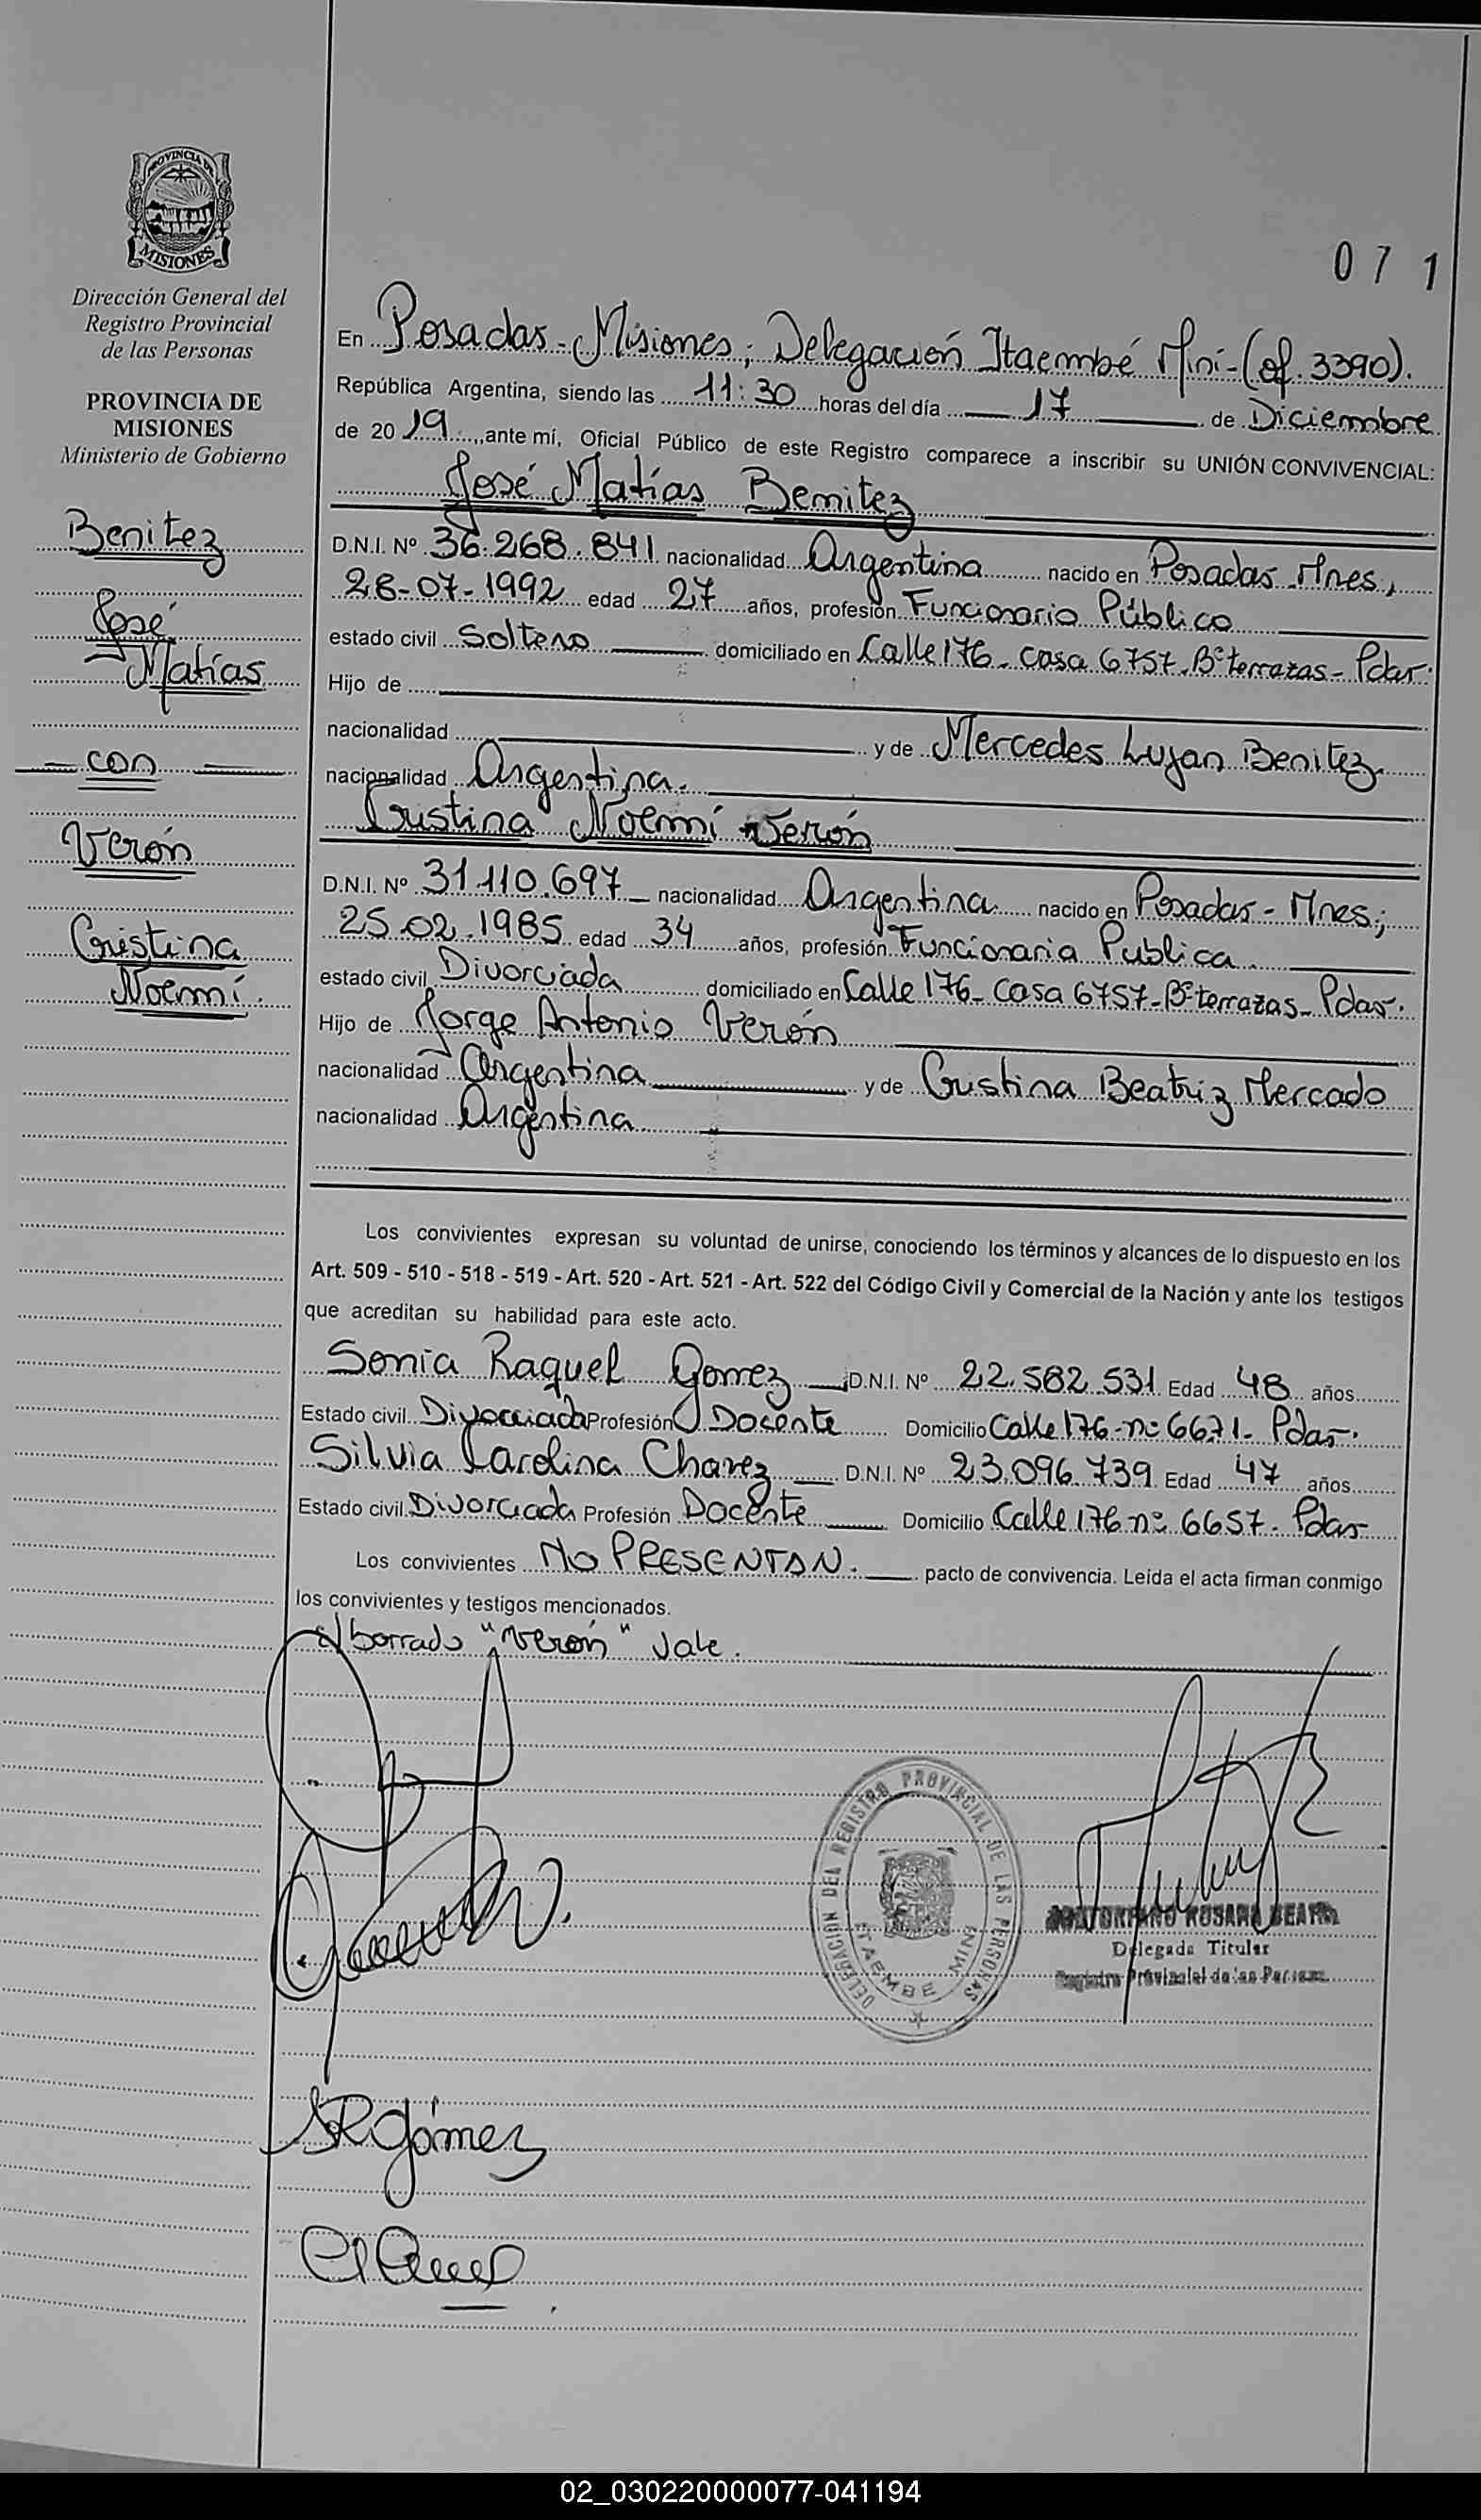 PROVINCIA DE
MISIONES
Dirección General del
Registro Provincial
de las Personas
PROVINCIA DE
MISIONES
Ministerio de Gobierno
Benitez
José
Matías
con
Verón
Cristina
Noemí.
071
En Posadas - Misiones; Delegación Itaembé Miní - (of. 3390).
República Argentina, siendo las 11:30 horas del día 17 de Diciembre
de 2019, ante mí, Oficial Público de este Registro comparece a inscribir su UNIÓN CONVIVENCIAL:
José Matías Benitez
D.N.I. Nº 36.268.841 nacionalidad Argentina nacido en Posadas Mnes,
28-07-1992 edad 27 años, profesión Funcionario Público
estado civil Soltero domiciliado en Calle 176 - casa 6757 - Bº terrazas - Pdas.
Hijo de
nacionalidad y de Mercedes Lujan Benitez
nacionalidad Argentina.
Cristina Noemí Verón
D.N.I. Nº 31.110.697 nacionalidad Argentina nacido en Posadas - Mnes;
25.02.1985 edad 34 años, profesión Funcionaria Publica
estado civil Divorciada domiciliado en Calle 176 - Casa 6757 - Bº terrazas - Pdas.
Hijo de Jorge Antonio Verón
nacionalidad Argentina y de Cristina Beatriz Mercado
nacionalidad Argentina
Los convivientes expresan su voluntad de unirse, conociendo los términos y alcances de lo dispuesto en los
Art. 509 - 510 - 518 - 519 - Art. 520 - Art. 521 - Art. 522 del Código Civil y Comercial de la Nación y ante los testigos
que acreditan su habilidad para este acto.
Sonia Raquel Gomez D.N.I. Nº 22.582.531 Edad 48 años
Estado civil Divorciada Profesión Docente Domicilio Calle 176 - nº 6671 - Pdas.
Silvia Carolina Chavez D.N.I. Nº 23.096.739 Edad 47 años
Estado civil Divorciada Profesión Docente Domicilio Calle 176 nº 6657. Pdas
Los convivientes NO PRESENTAN. pacto de convivencia. Leída el acta firman conmigo
los convivientes y testigos mencionados.
s/borrado "Verón" Vale.
DELEGACIÓN DEL REGISTRO PROVINCIAL DE LAS PERSONAS
ITAEMBE MINI
ROSANA BEATRIZ
Delegada Titular
Registro Provincial de las Personas
SRGómez
02_030220000077-041194